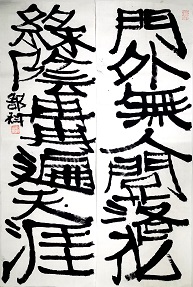 門外無人問落花
綠陰冉冉遍天涯
鄒